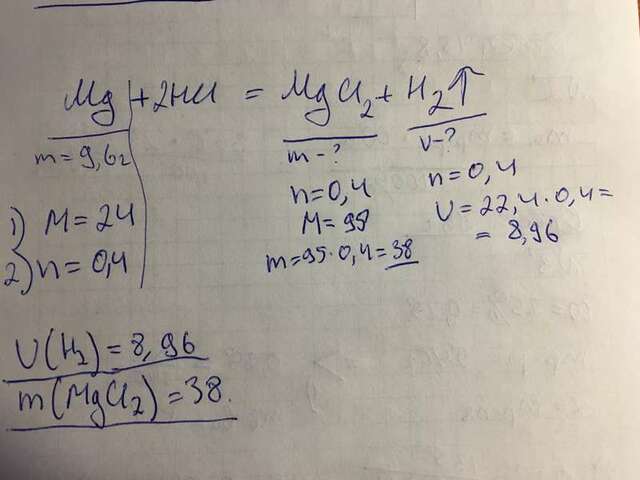 Mg + 2HCl = MgCl₂ + H₂↑
m = 9,6г
m - ?
V - ?
1) M = 24
2) n = 0,4
n = 0,4
M = 95
m = 95 · 0,4 = 38
n = 0,4
V = 22,4 · 0,4 =
= 8,96
V(H₂) = 8,96
m(MgCl₂) = 38.